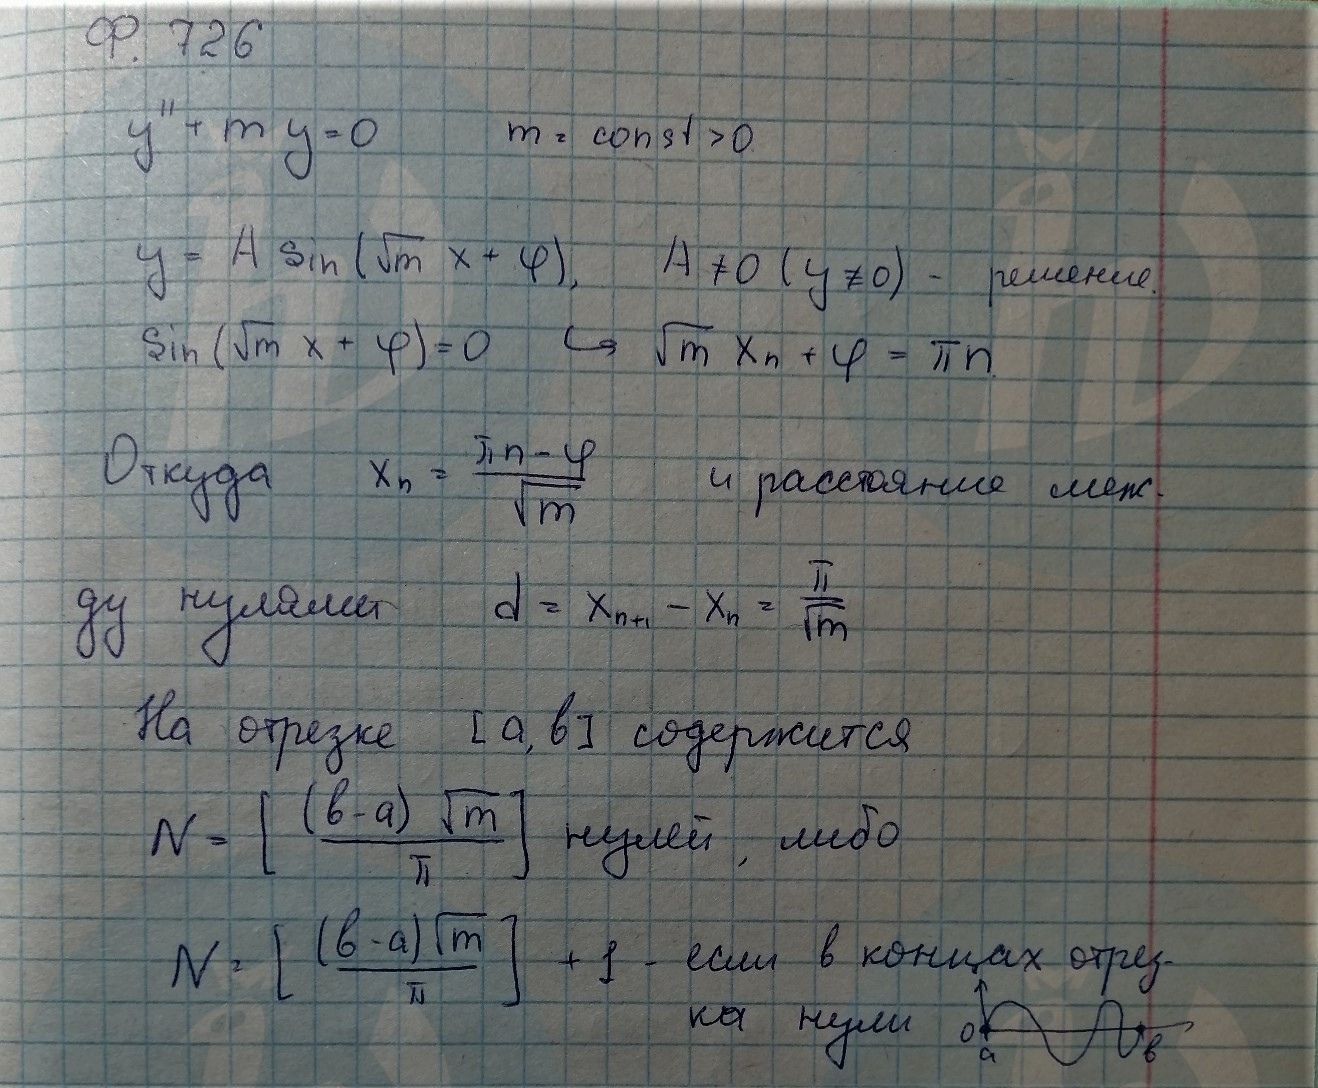 Ф. 726
y'' + m y = 0    m = const > 0
y = A sin(√m x + φ),    A ≠ 0 (y ≠ 0) - решение.
sin(√m x + φ) = 0  ↪  √m xₙ + φ = πn.
Откуда  xₙ = (πn - φ)/√m  и расстояние меж-
ду нулями  d = xₙ₊₁ - xₙ = π/√m
На отрезке [a, b] содержится
N = [(b-a) √m / π] нулей, либо
N = [(b-a) √m / π] + 1 - если в концах отрез-
ка нули
0
a
b